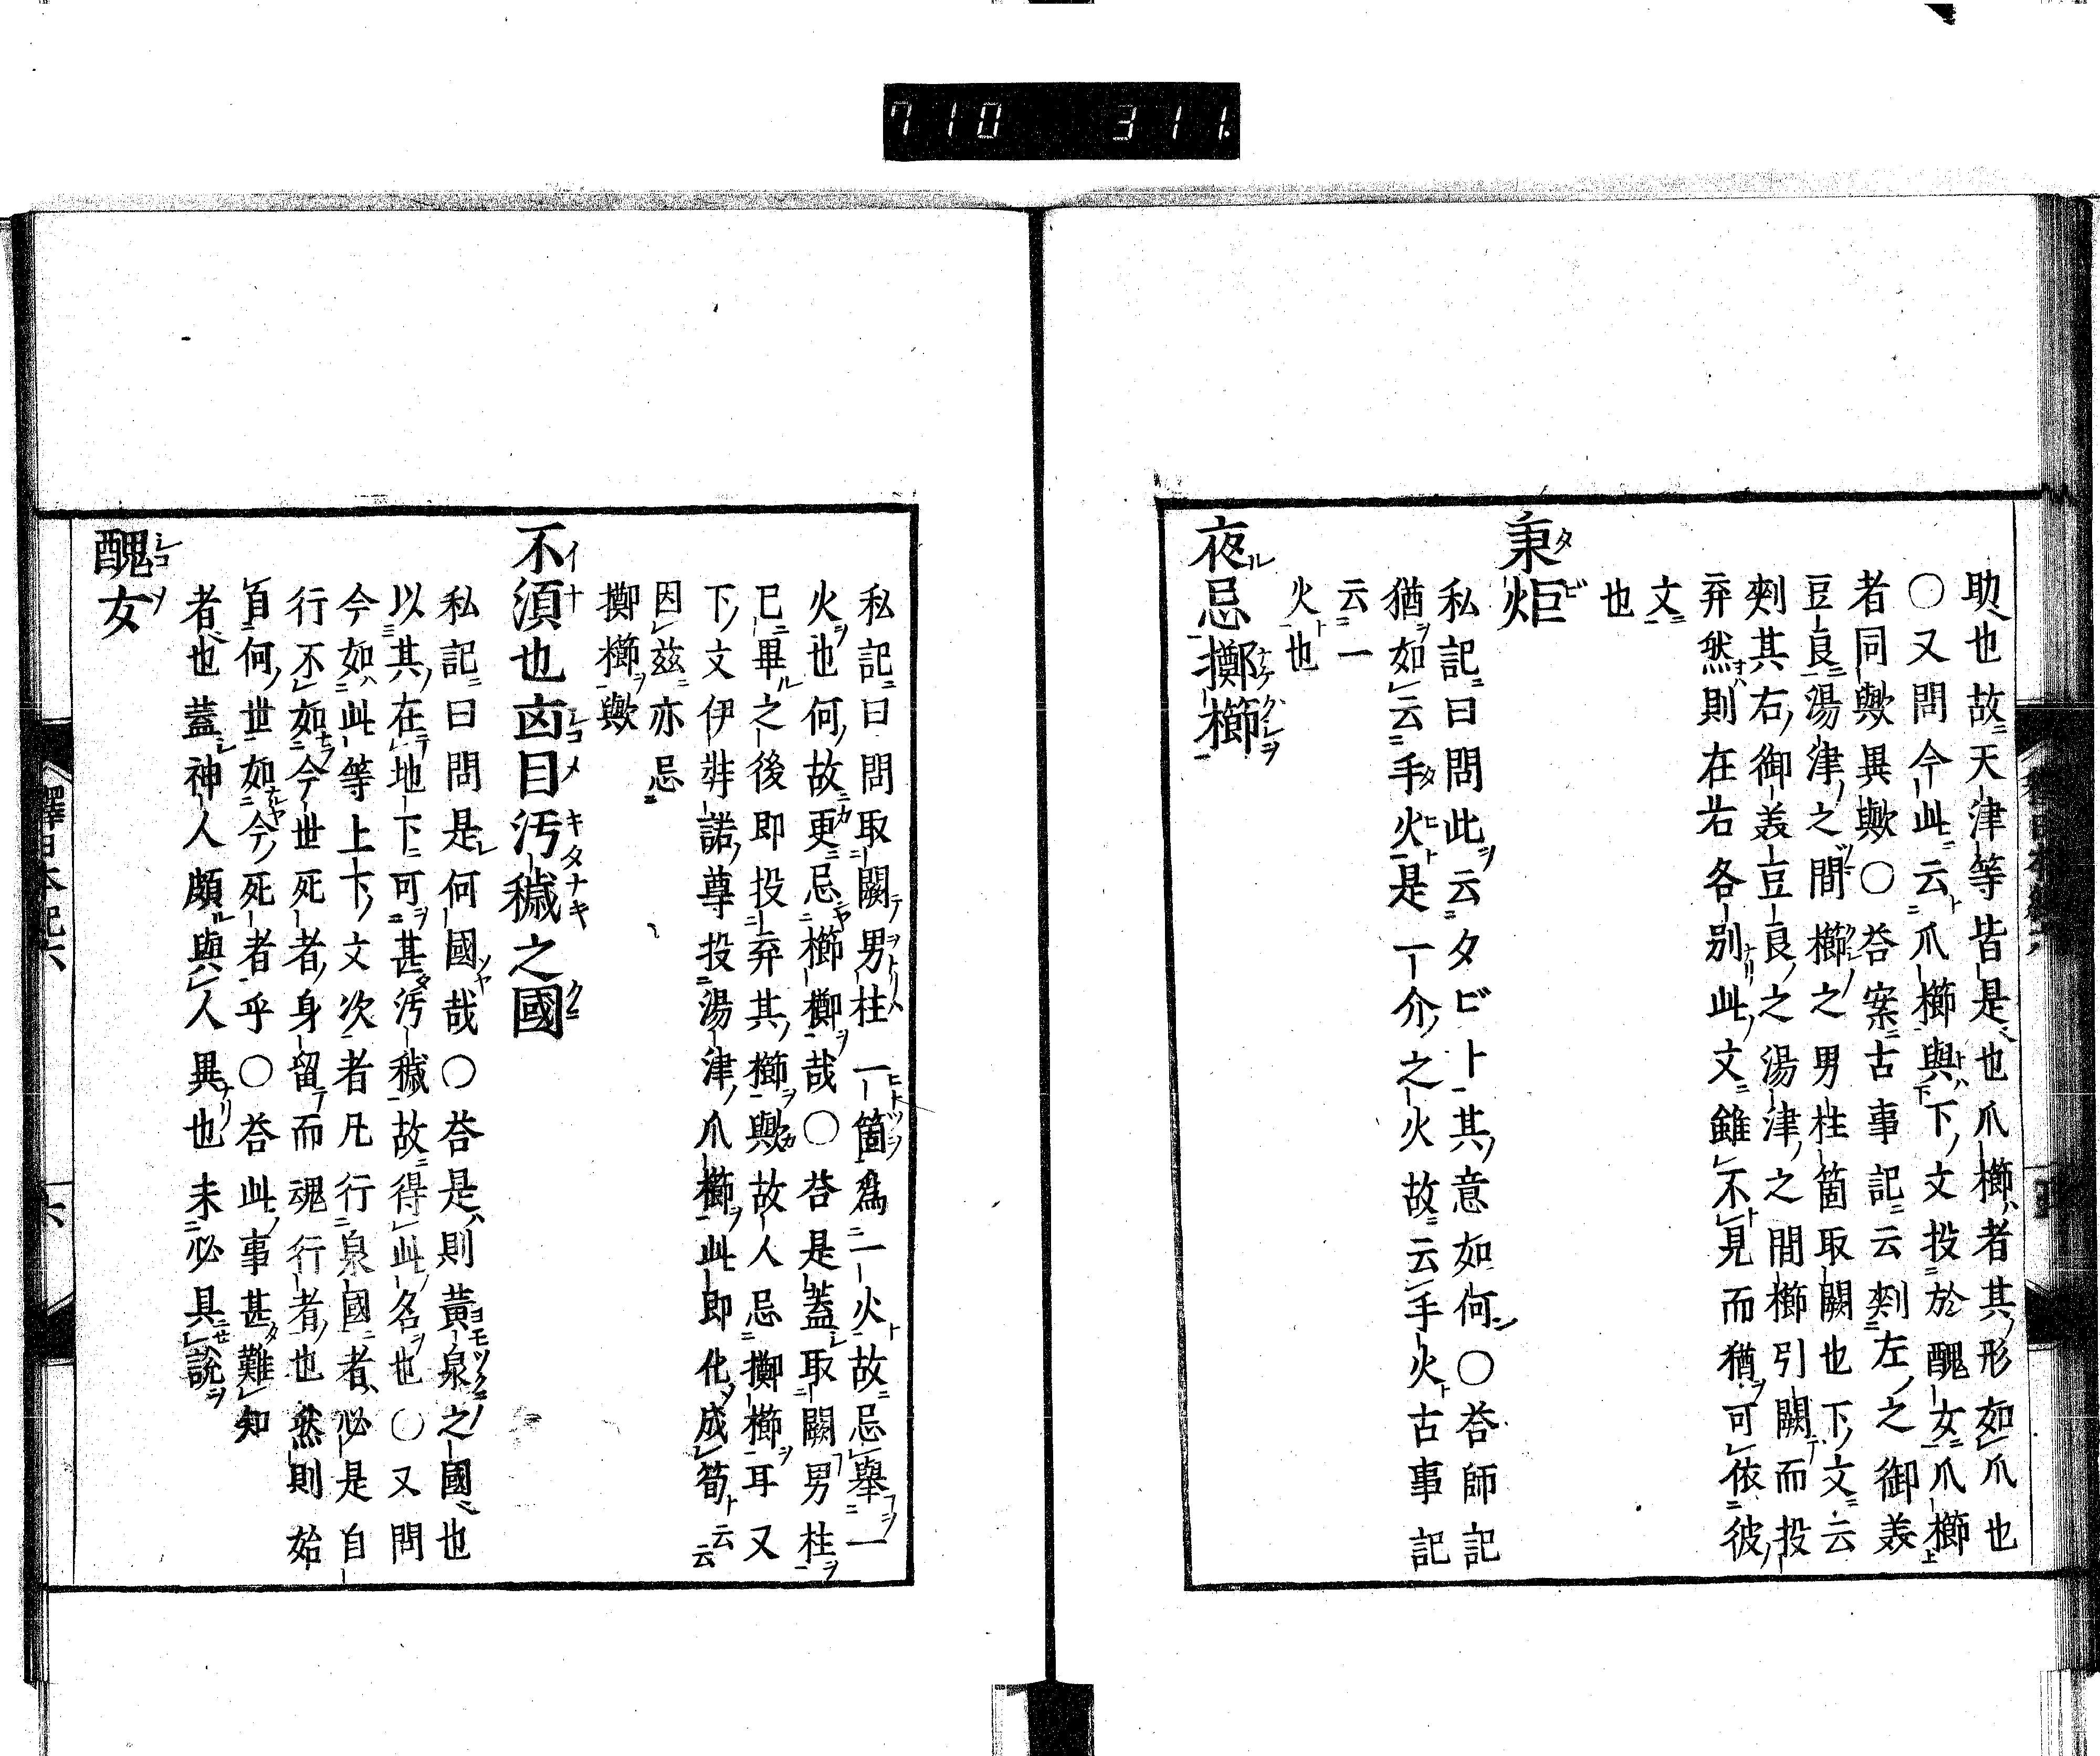 710 311
助也故天津等皆是也爪櫛者其形如爪也
〇又問今此云爪櫛與下文投於醜女爪櫛
者同歟異歟〇荅案古事記云刾左之御羙
豆良湯津之間櫛之男柱箇取闕也下文云
刾其右御羙豆良之湯津之間櫛引闕而投
弃然則在右各別此文雖不見而猶可依彼
文
也
秉炬
私記曰問此云タビト其意如何〇荅師記
猶如云手火是一介之火故云手火古事記
云一
火也
夜忌擲櫛
私記曰問取闕男柱一箇爲一火故忌舉一
火也何故更忌櫛擲哉〇荅是蓋取闕男柱
已畢之後即投弃其櫛歟故人忌擲櫛耳又
下文伊弉諾尊投湯津爪櫛此即化成筍云云
因兹亦忌
擲櫛歟
不須也凶目汚穢之國
私記曰問是何國哉〇荅是則黄泉之國也
以其在地下可甚汚穢故得此名也〇又問
今如此等上下文次者凡行泉國者必是自
行不如今世死者身留而魂行者也然則始
自何世如今死者乎〇荅此事甚難知
者也蓋神人頗與人異也未必具説
醜女
釋日本紀六
六